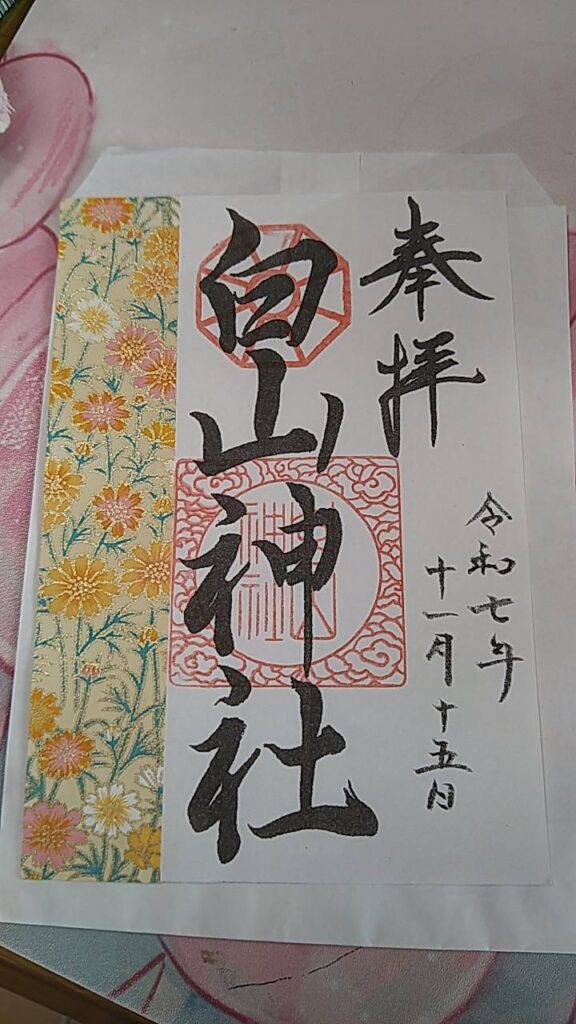 奉拝
白山神社
令和七年
十一月十五日